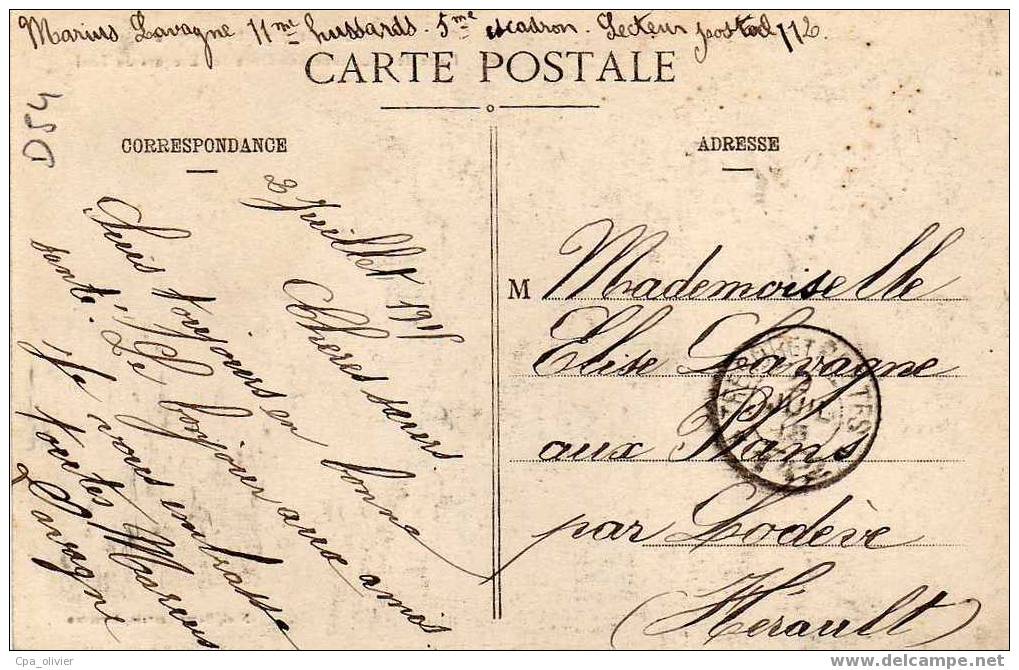 Marius Lavagne 11me hussards. 5me escadron. Secteur postal 112.
CARTE POSTALE
D54
CORRESPONDANCE
ADRESSE
2 Juillet 1915
Chères sœurs.
Suis toujours en bonne
santé. Le bonjour aux amis
Je vous embrasse
toutes. Marius
Lavagne
M Mademoiselle
Elise Lavagne
aux Plans
par Lodève
Hérault
TRESOR ET POSTES
Cpa_olivier
www.delcampe.net